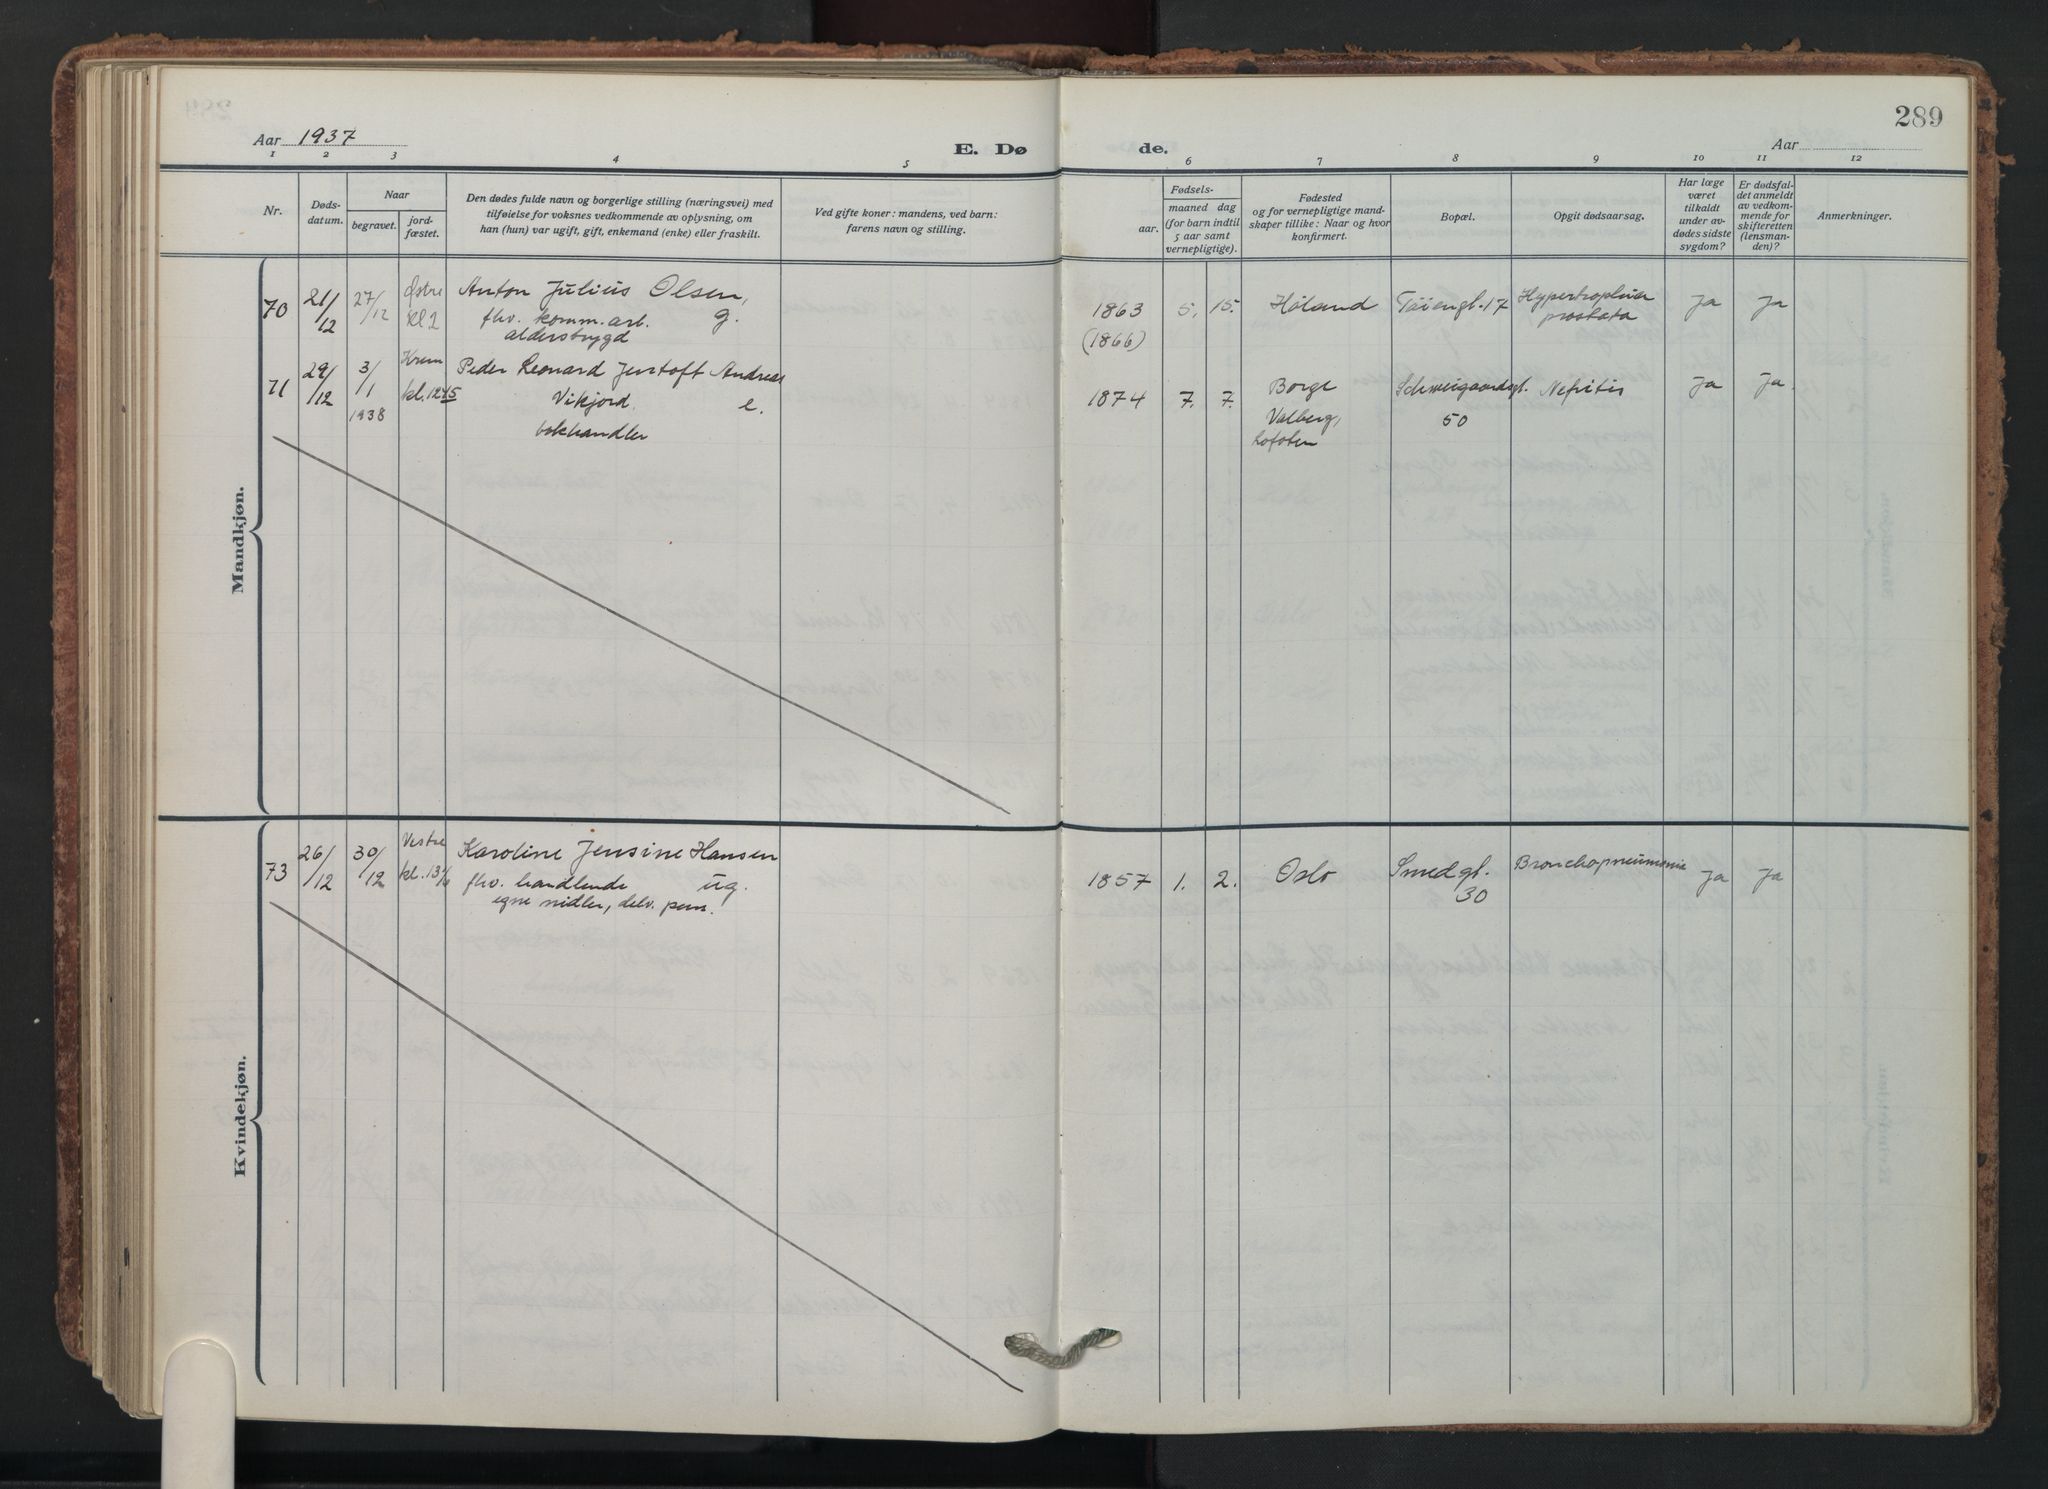 289
Aar 1937
E. Dø de.
Aar
1 2 3 4 5 6 7 8 9 10 11 12
Nr.
Døds-
datum.
Naar
begravet.
jord-
fæstet.
Den dødes fulde navn og borgerlige stilling (næringsvei) med
tilføielse for voksnes vedkommende av oplysning, om
han (hun) var ugift, gift, enkemand (enke) eller fraskilt.
Ved gifte koner: mandens, ved barn:
farens navn og stilling.
Fødsels-
aar.
maaned dag
(for barn indtil
5 aar samt
vernepligtige).
Fødested
og for vernepligtige mand-
skaper tillike: Naar og hvor
konfirmert.
Bopæl.
Opgit dødsaarsag.
Har læge
været
tilkaldt
under av-
dødes sidste
sygdom?
Er dødsfal-
det anmeldt
av vedkom-
mende for
skifteretten
(lensman-
den)?
Anmerkninger.
Mandkjøn.
70 21/12 27/12 Østre kl 2
Anton Julius Olsen,
fhv. komm. arb. g.
alderstrygd
1863 5. 15. Høland Tøiengt. 17 Hypertrophia
prostata
Ja Ja
(1866)
71 29/12 3/1 1938 Krem kl. 12 45
Peder Leonard Jentoft Andreas
Vikjord. e.
bokhandler
1874 7. 7. Borge
Valberg,
Lofoten
Schweigaardsgt.
50
Nefritis Ja Ja.
Kvindekjøn.
73 26/12 30/12 Vestre kl. 13
Karoline Jensine Hansen
fhv. handlende ug.
egne midler, delv. pens.
1857 1. 2. Oslo Smedgt.
30
Bronchopneumonie Ja Ja